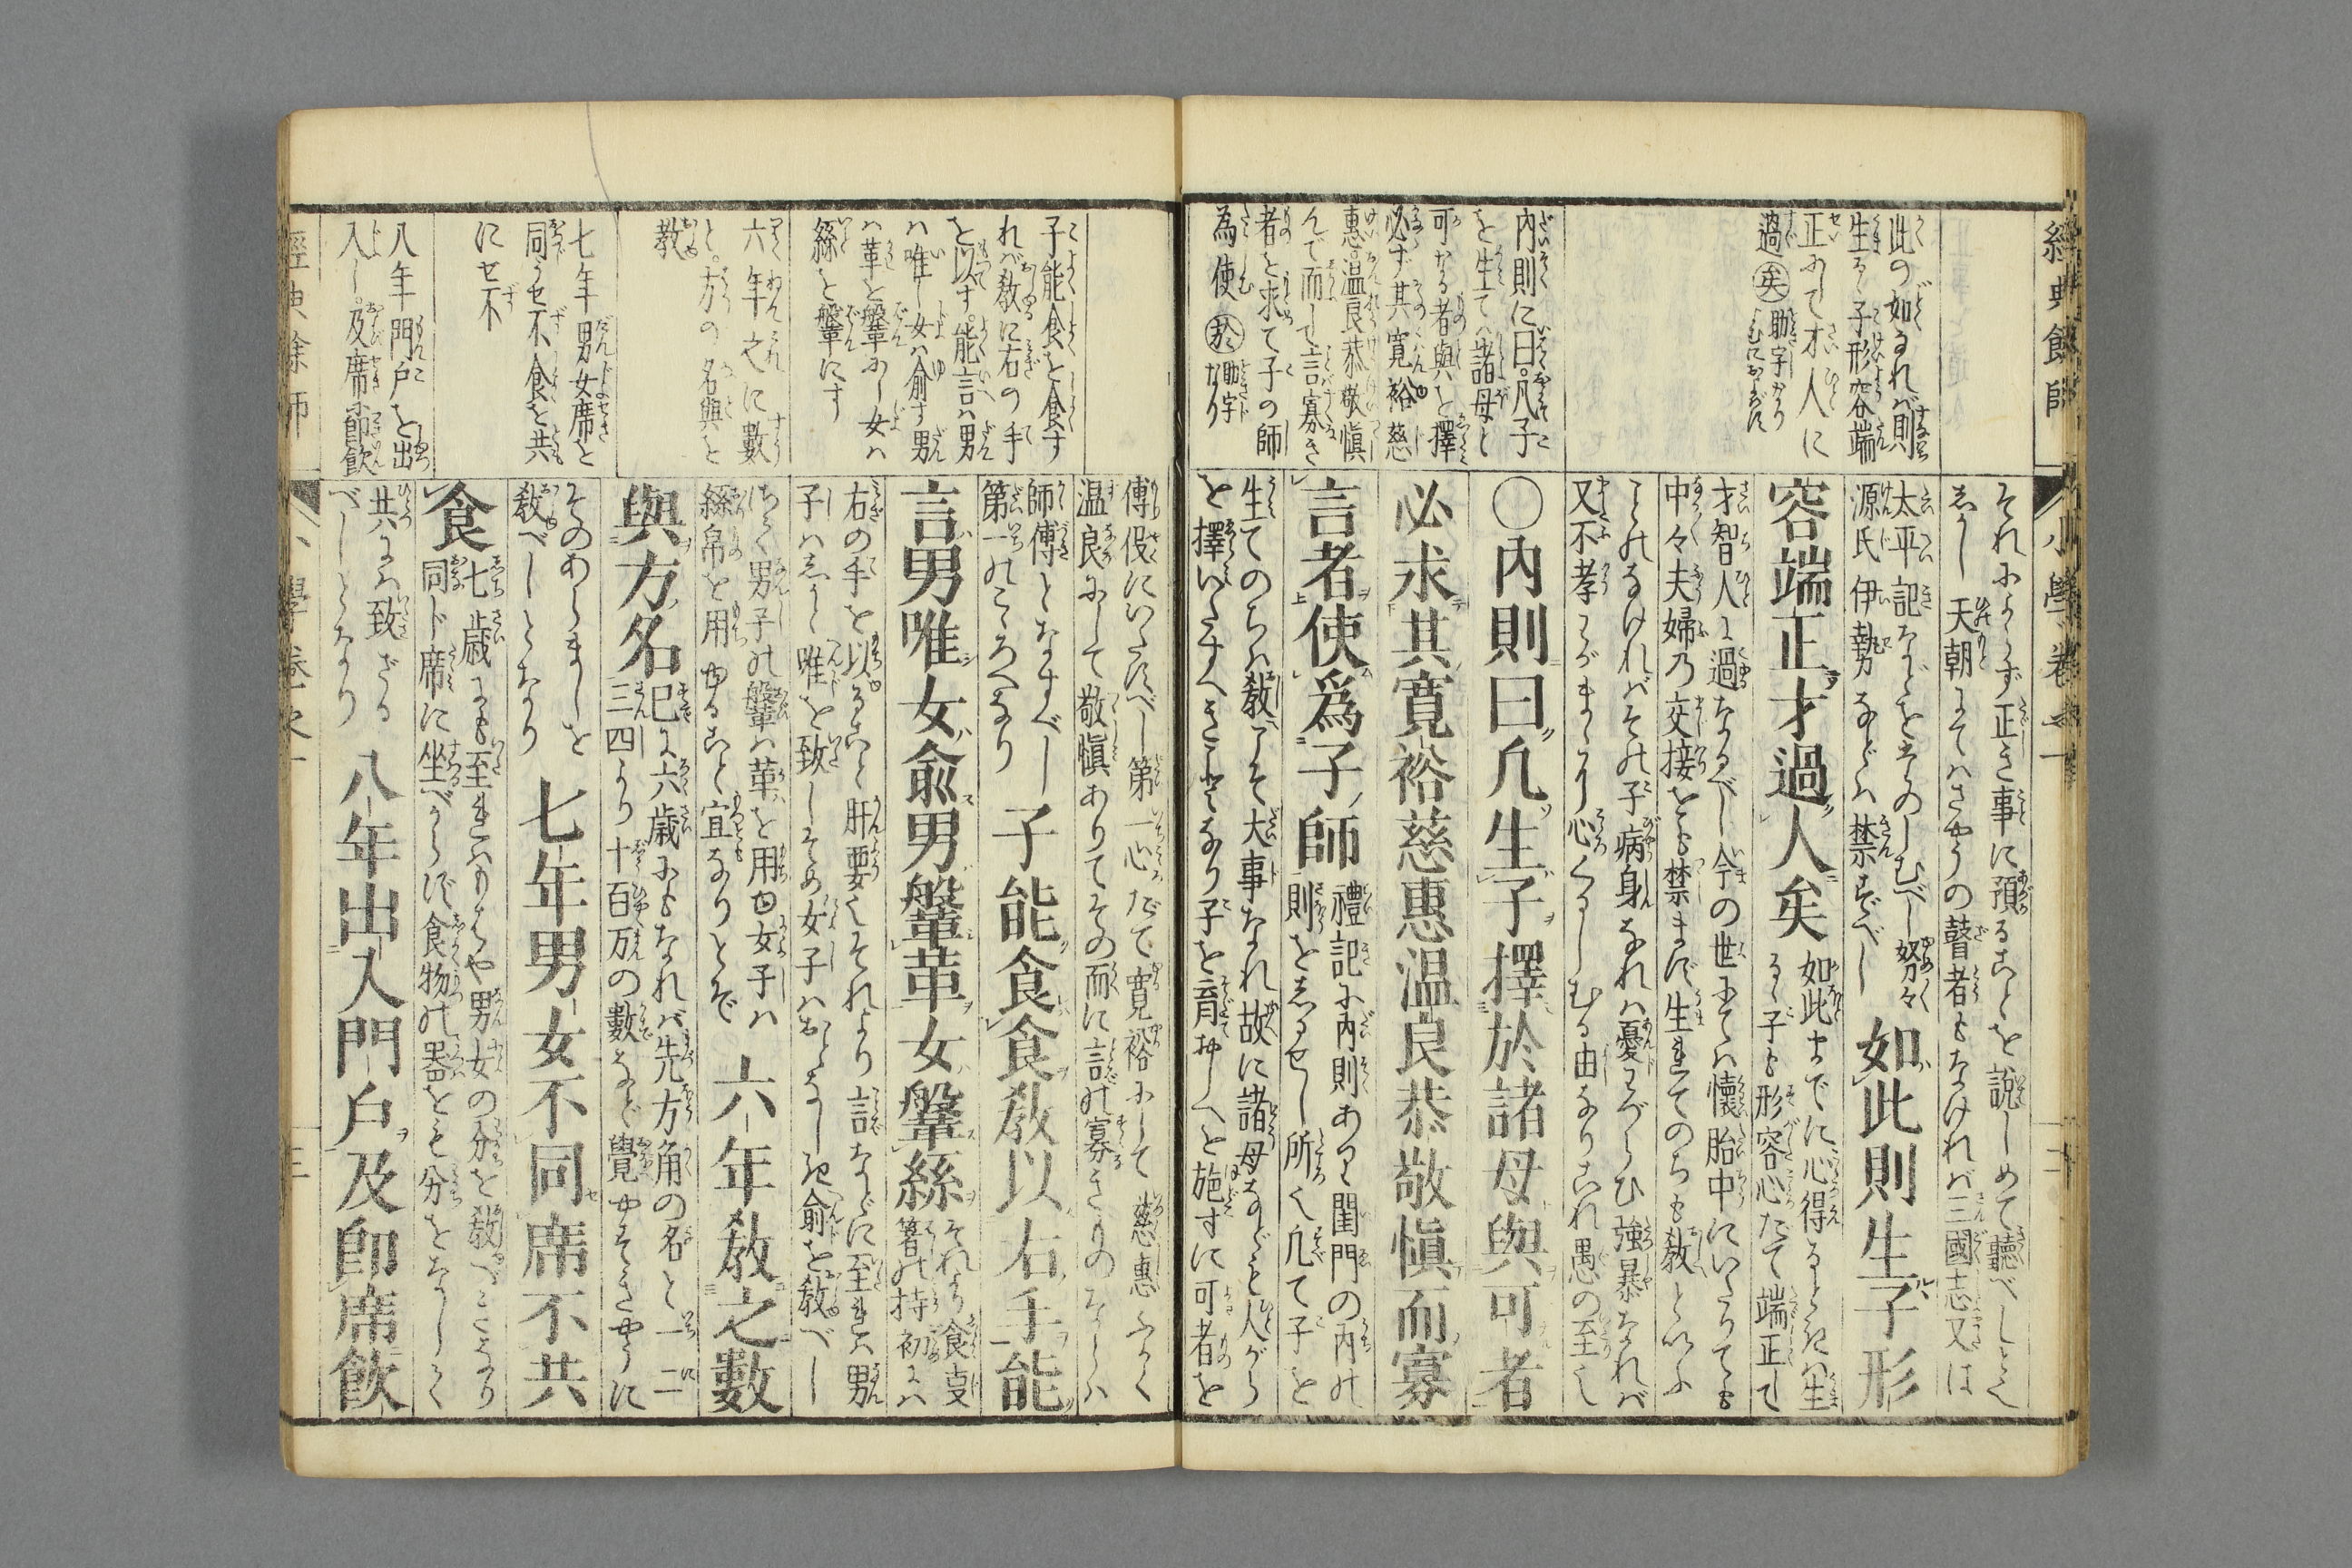 經典餘師
小學卷之一
此の如なれバ則
生るゝ子形容端
正にして才人に
過
矣
助字なり
よむにおよばず
內則に曰凡子
を生てハ諸母と
可なる者與を擇
必ず其寛裕慈
惠温良恭敬愼
んで而して言寡き
者を求て子の師
為使
於
助字なり
それによらず正き事に預ることを説しめて聽べしとぞ
天朝にてハさやうの瞽者もなければ三國志又は
太平記などをたのしむべし努々
源氏伊勢などハ禁ずべし
如此則生子形
容端正才過人矣
如此までに心得るときハ生
るゝ子も形容心だて端正して
才智人に過なるべし今の世にてハ懷胎中にいたりても
中々夫婦の交接をも禁まず生れてのちも敎といふ
ことのなければその子病身なれハ憂ひ強暴なれバ
又不孝心くるしむる由なりこれ愚の至也
〇內則曰凡生子擇於諸母與可者
必求其寛裕慈惠温良恭敬愼而寡
言者使爲子師
禮記に內則あり閨門の內の
則をしるせし所也凡て子を
生てのちハ敎こそ大事なれ故に諸母など人がら
を擇いたすべきことなり子を育
施すに可者を
子能食を食す
れバ敎に右の手
を以す能言ハ男
ハ唯し女ハ俞す男
ハ革を鞶にし女ハ
絲を鞶にす
六年之に數
と方の名與を
敎
七年男女席を
同うせ不食を共
にせ不
八年門戸を出
入し及席に卽飮
傅役にいたすべし第一心だて寛裕にして慈惠ふかく
温良にして敬愼ありてその而に言の寡きものならハ
師傅となすべし
第一のこゝろへなり
子能食食敎以右手能
言男唯女俞男鞶革女鞶絲
それより食事
箸の持初にハ
右の手を以ること肝要也それより言などに至れハ男
子ハ唯を致しそめ女子ハおとなしき俞を敎べし
男子の鞶ハ革を用ゆ女子ハ
絲帛を用ゆること宜なりとぞ
六年敎之數
與方名
已に六歳にもなれバ先方角の名と一二
三四より十百万の數など覺やすきやうに
そのあらましを
敎べしとなり
七年男女不同席不共
食
七歳にも至れハもはや男女の分を敎べきなり
同ド席に坐べからず食物の器をも分をなして
共にハ致ざる
べしとなり
八年出入門戸及卽席飮
經典餘師
小學卷之一